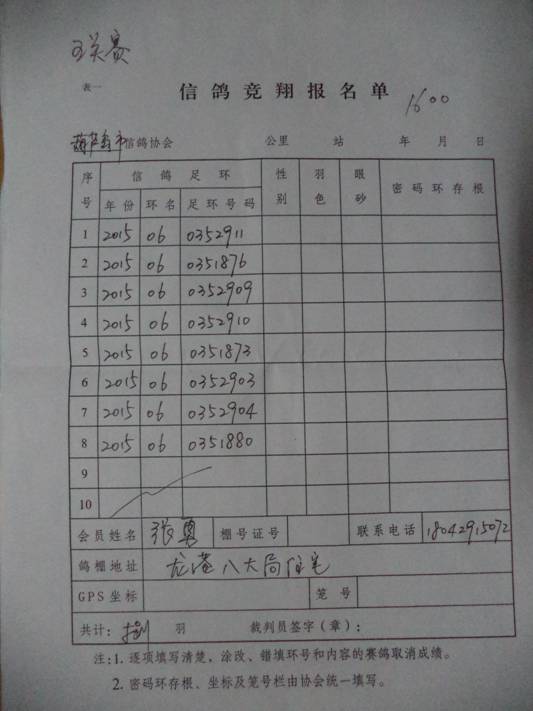 关赛
表一
信鸽竞翔报名单
1600
葫芦岛市信鸽协会 公里 站 年 月 日
序号 信鸽足环 性别 羽色 眼砂 密码环存根
年份 环名 足环号码
1 2015 06 0352911
2 2015 06 0351876
3 2015 06 0352909
4 2015 06 0352910
5 2015 06 0351873
6 2015 06 0352903
7 2015 06 0352904
8 2015 06 0351880
9
10
会员姓名 张勇 棚号证号 联系电话 18042915072
鸽棚地址 龙港八大局住宅
GPS坐标 笼号
共计: 羽 裁判员签字(章):
注:1. 逐项填写清楚,涂改、错填环号和内容的赛鸽取消成绩。
2. 密码环存根、坐标及笼号栏由协会统一填写。